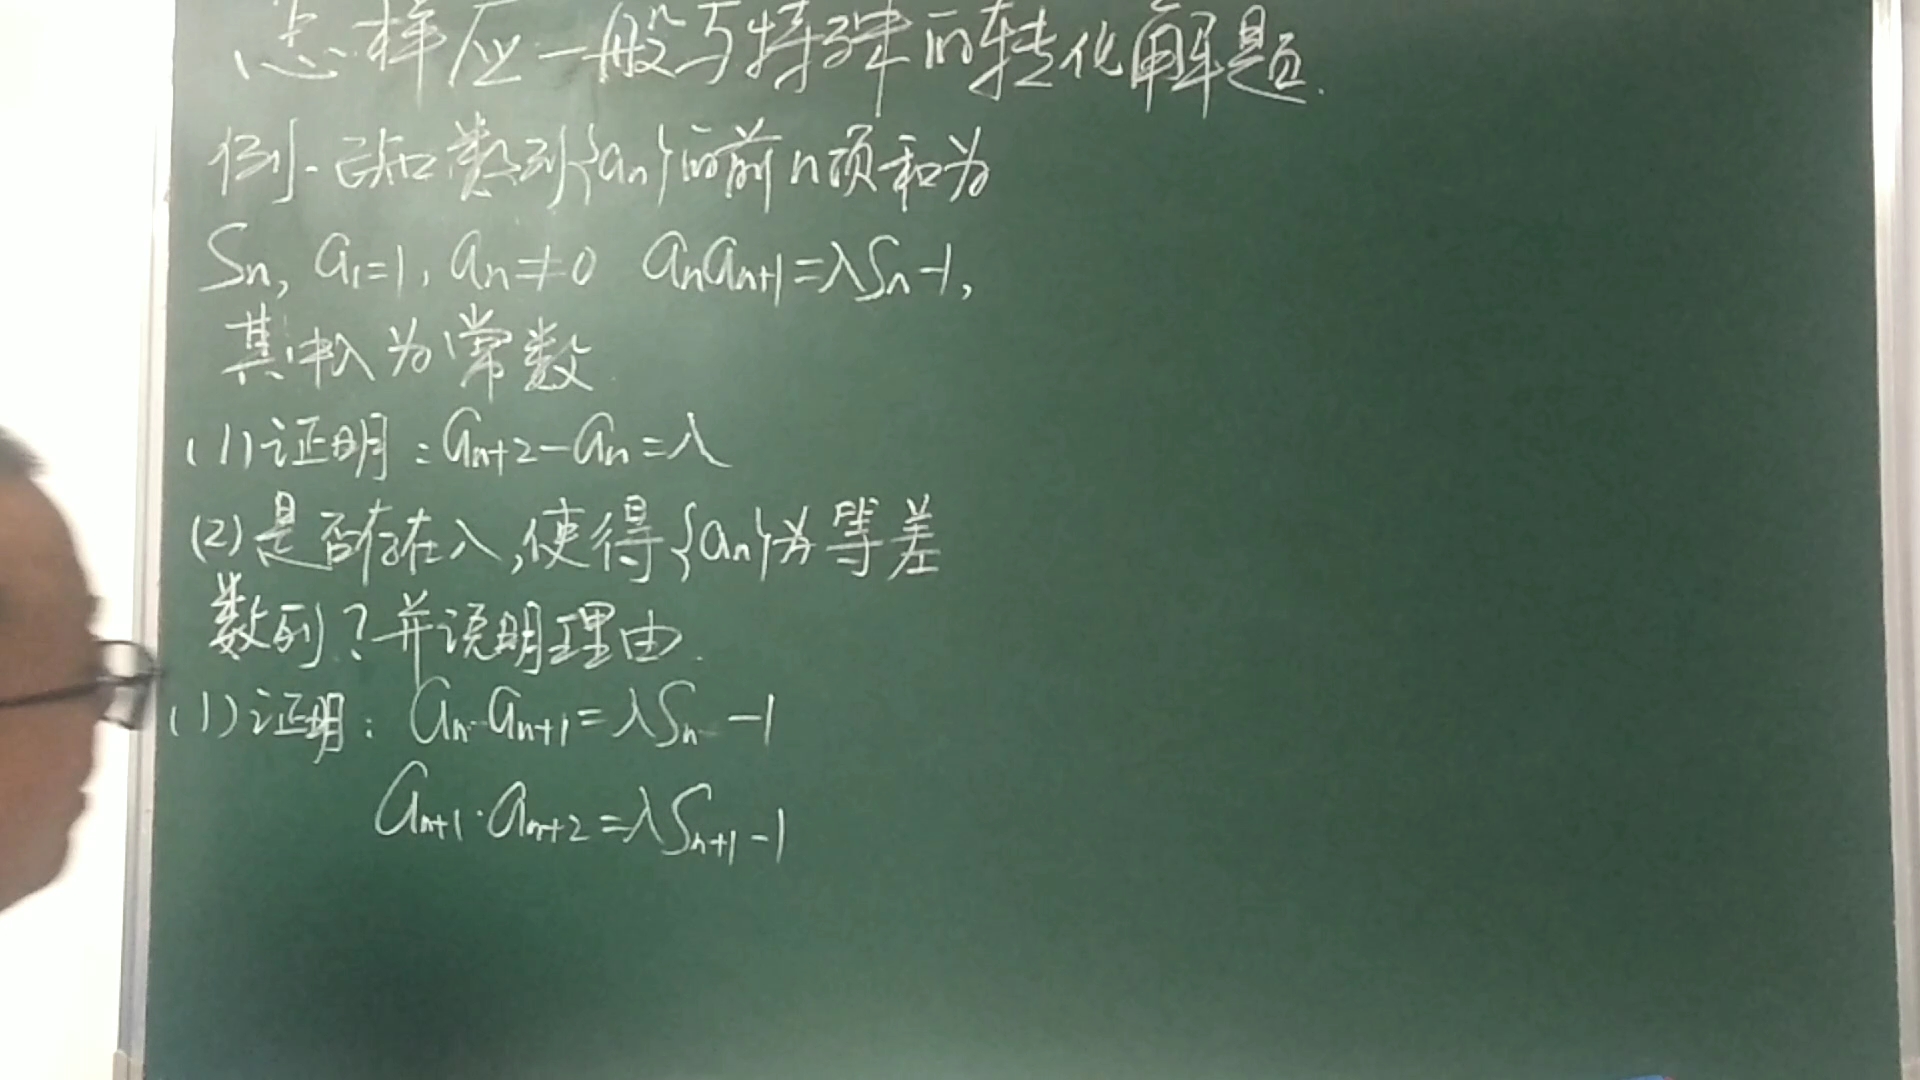 怎样应一般与特殊的转化解题.
例.已知数列{aₙ}的前n项和为
Sₙ, a₁=1, aₙ≠0 aₙaₙ₊₁=λSₙ-1,
其中λ为常数.
(1)证明:aₙ₊₂-aₙ=λ
(2)是否存在λ,使得{aₙ}为等差
数列?并说明理由.
(1)证明: aₙ·aₙ₊₁=λSₙ-1
aₙ₊₁·aₙ₊₂=λSₙ₊₁-1